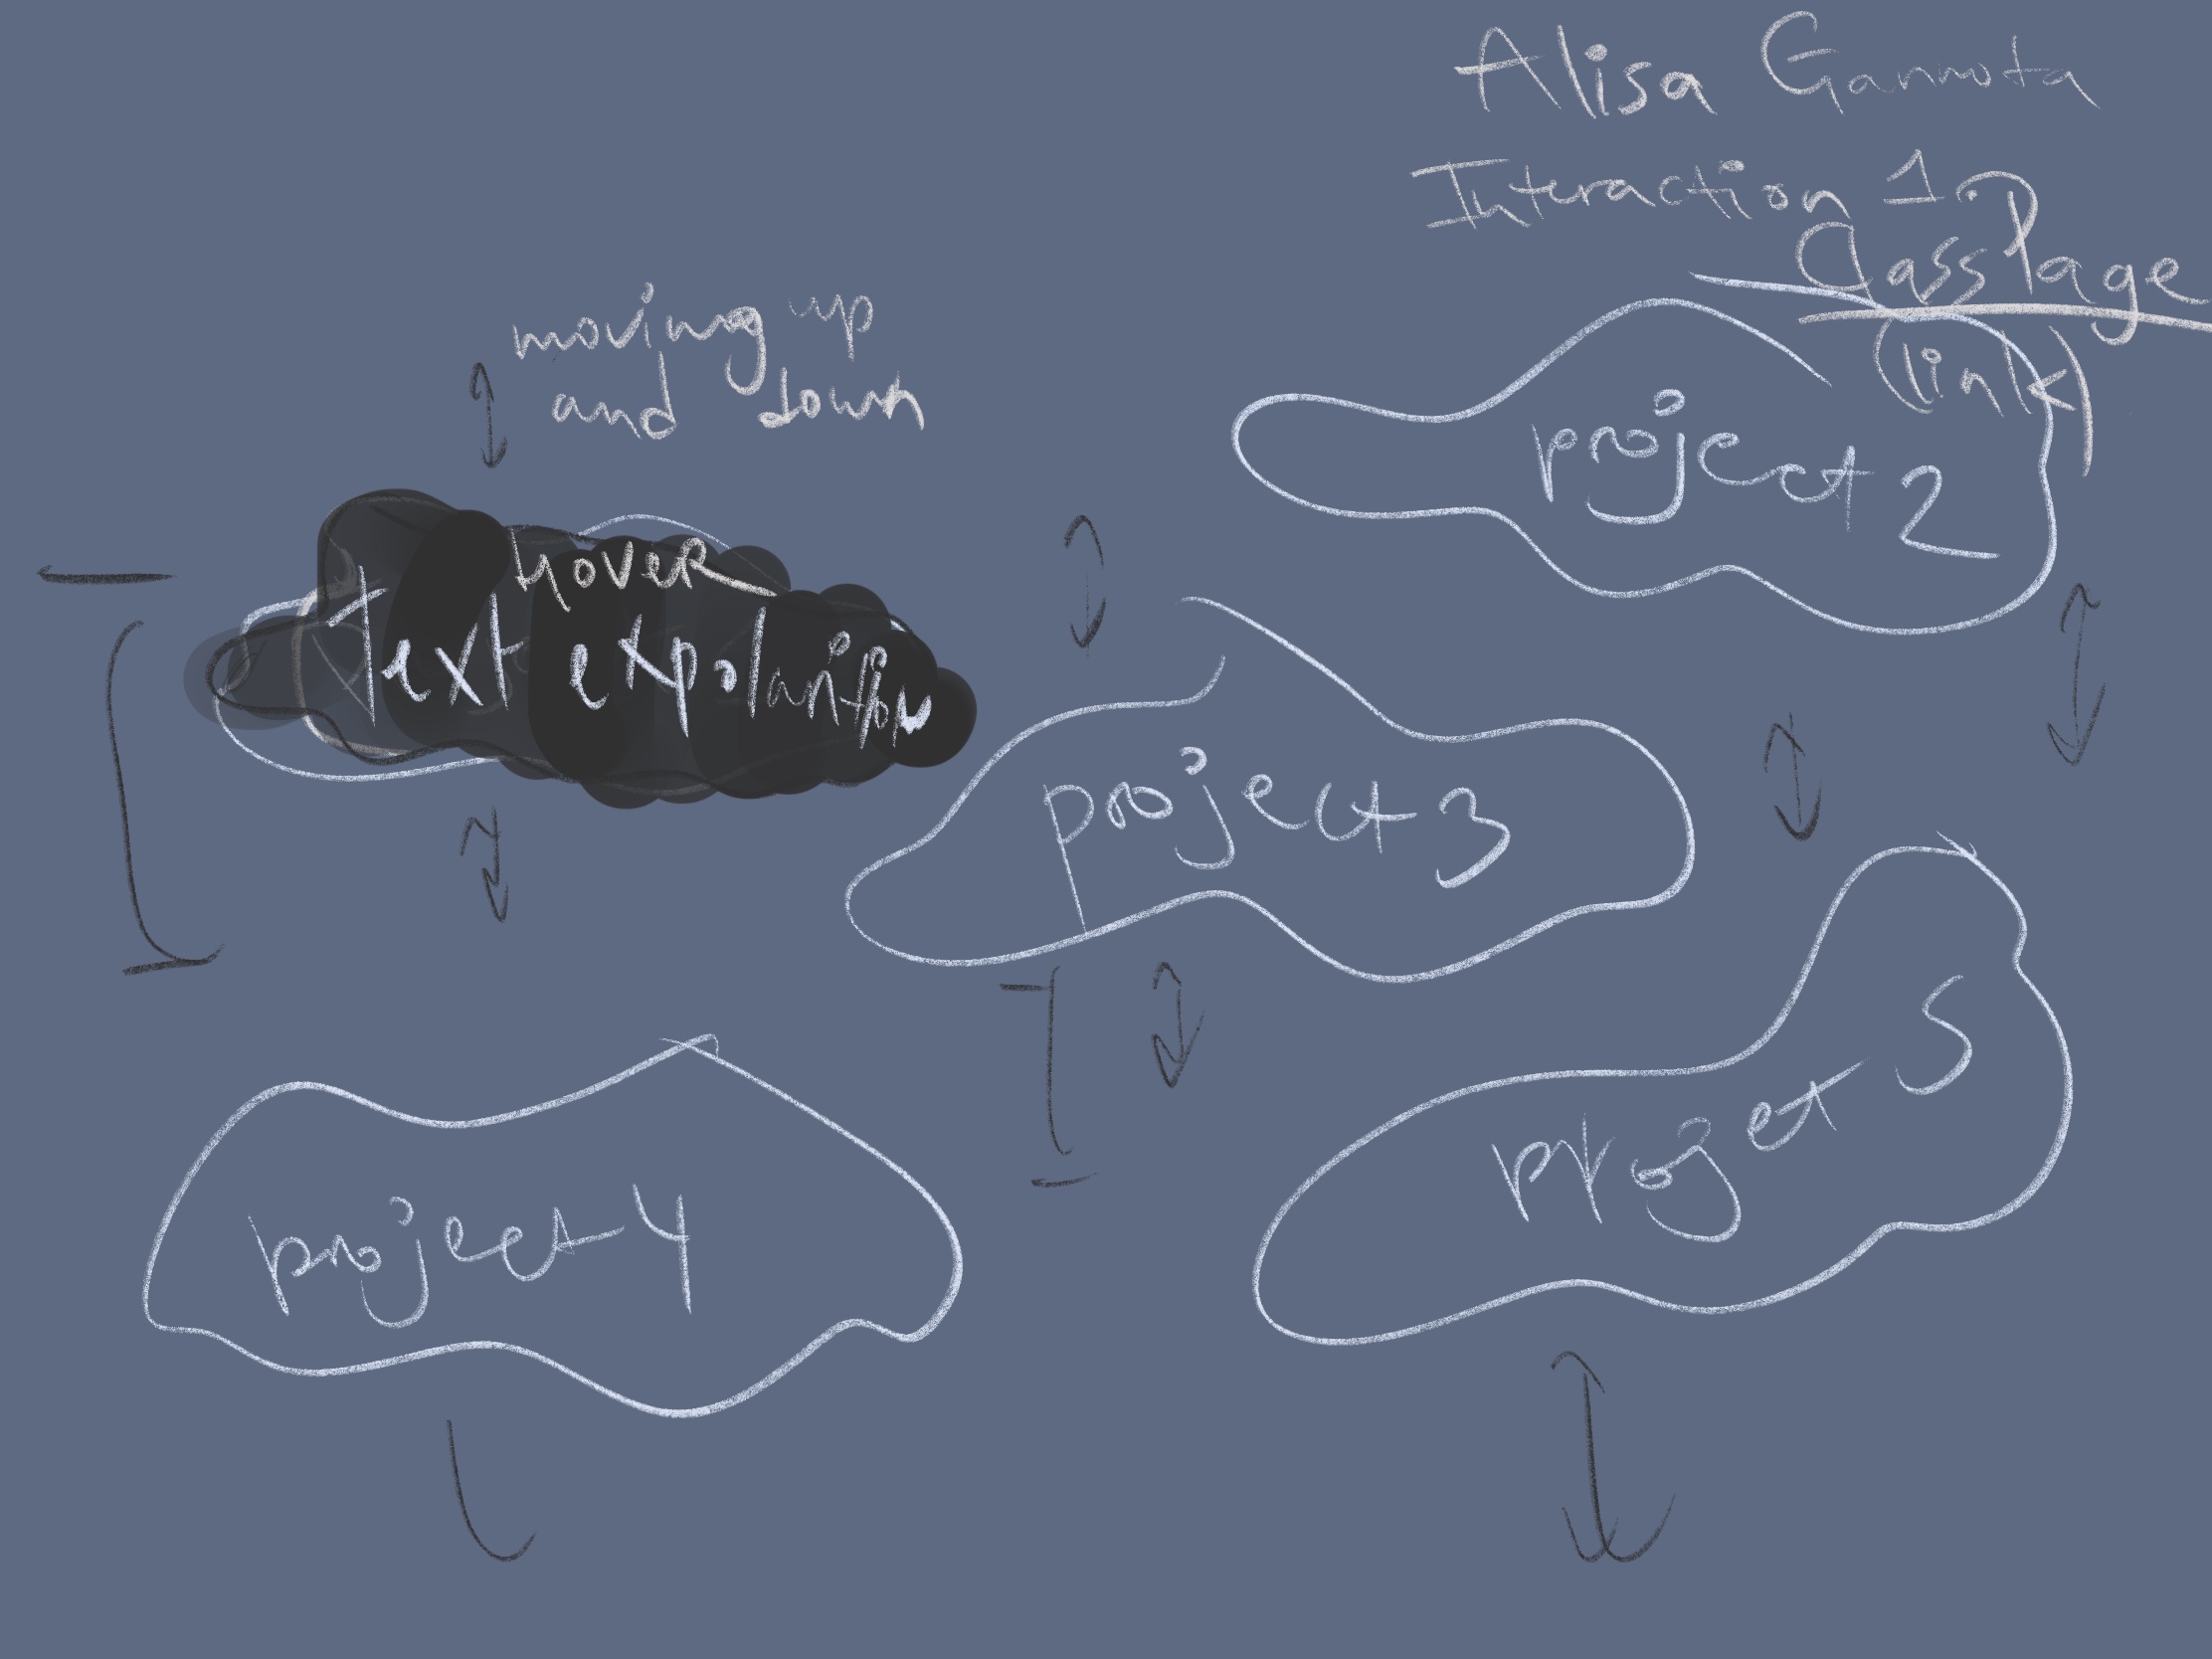 Alisa Gannota
Interaction 1.
Class Page
(link)
moving up
and down
project 2
hover
text expolantion
project 3
project 4
projet 5